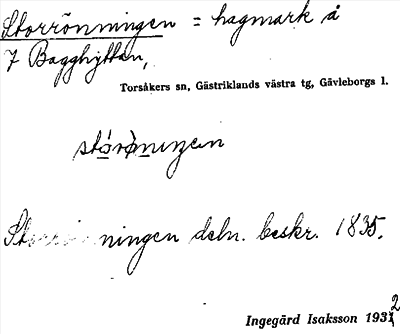 Storrönningen = hagmark å
7 Bagghyttan,
Torsåkers sn, Gästriklands västra tg, Gävleborgs l.
Storrönningen deln. beskr. 1835.
Ingegärd Isaksson 1932